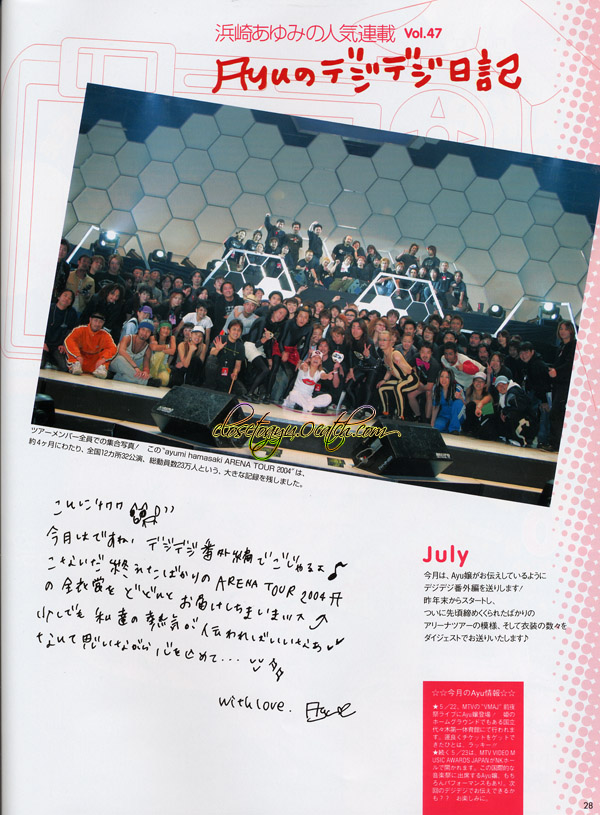 浜崎あゆみの人気連載 Vol.47
Ayuのデジデジ日記
closetoayu.0catch.com
ツアーメンバー全員での集合写真! この"ayumi hamasaki ARENA TOUR 2004"は、
約4ヶ月にわたり、全国12カ所32公演、総動員数23万人という、大きな記録を残しました。
こんにチワワ
今月はですね、デジデジ番外編でごじゃるよ♪
こないだ終えたばかりの ARENA TOUR 2004 A
の全衣裳を どどんと お届けしちゃいまいス
少しでも 私達の熱気が 伝わればいいなあ
なんて思いながら 心を込めて・・・
with love. Ayu
July
今月は、Ayu嬢がお伝えしているように
デジデジ番外編を送りします!
昨年末からスタートし、
ついに先頃締めくくられたばかりの
アリーナツアーの模様、そして衣装の数々を
ダイジェストでお送りいたします♪
☆☆今月のAyu情報☆☆
★5/22、MTVの"VMAJ" 前夜
祭ライブにAyu嬢登場! 姫の
ホームグラウンドでもある国立
代々木第一体育館にて行われま
す。運良くチケットをゲットで
きたひとは、ラッキー!!
★続く5/23は、MTV VIDEO M
USIC AWARDS JAPANがNKホー
ルで開かれます。この国際的な
音楽祭に出席するAyu嬢、もち
ろんパフォーマンスもあり。次
回のデジデジでお伝えできるか
も?? お楽しみに。
28